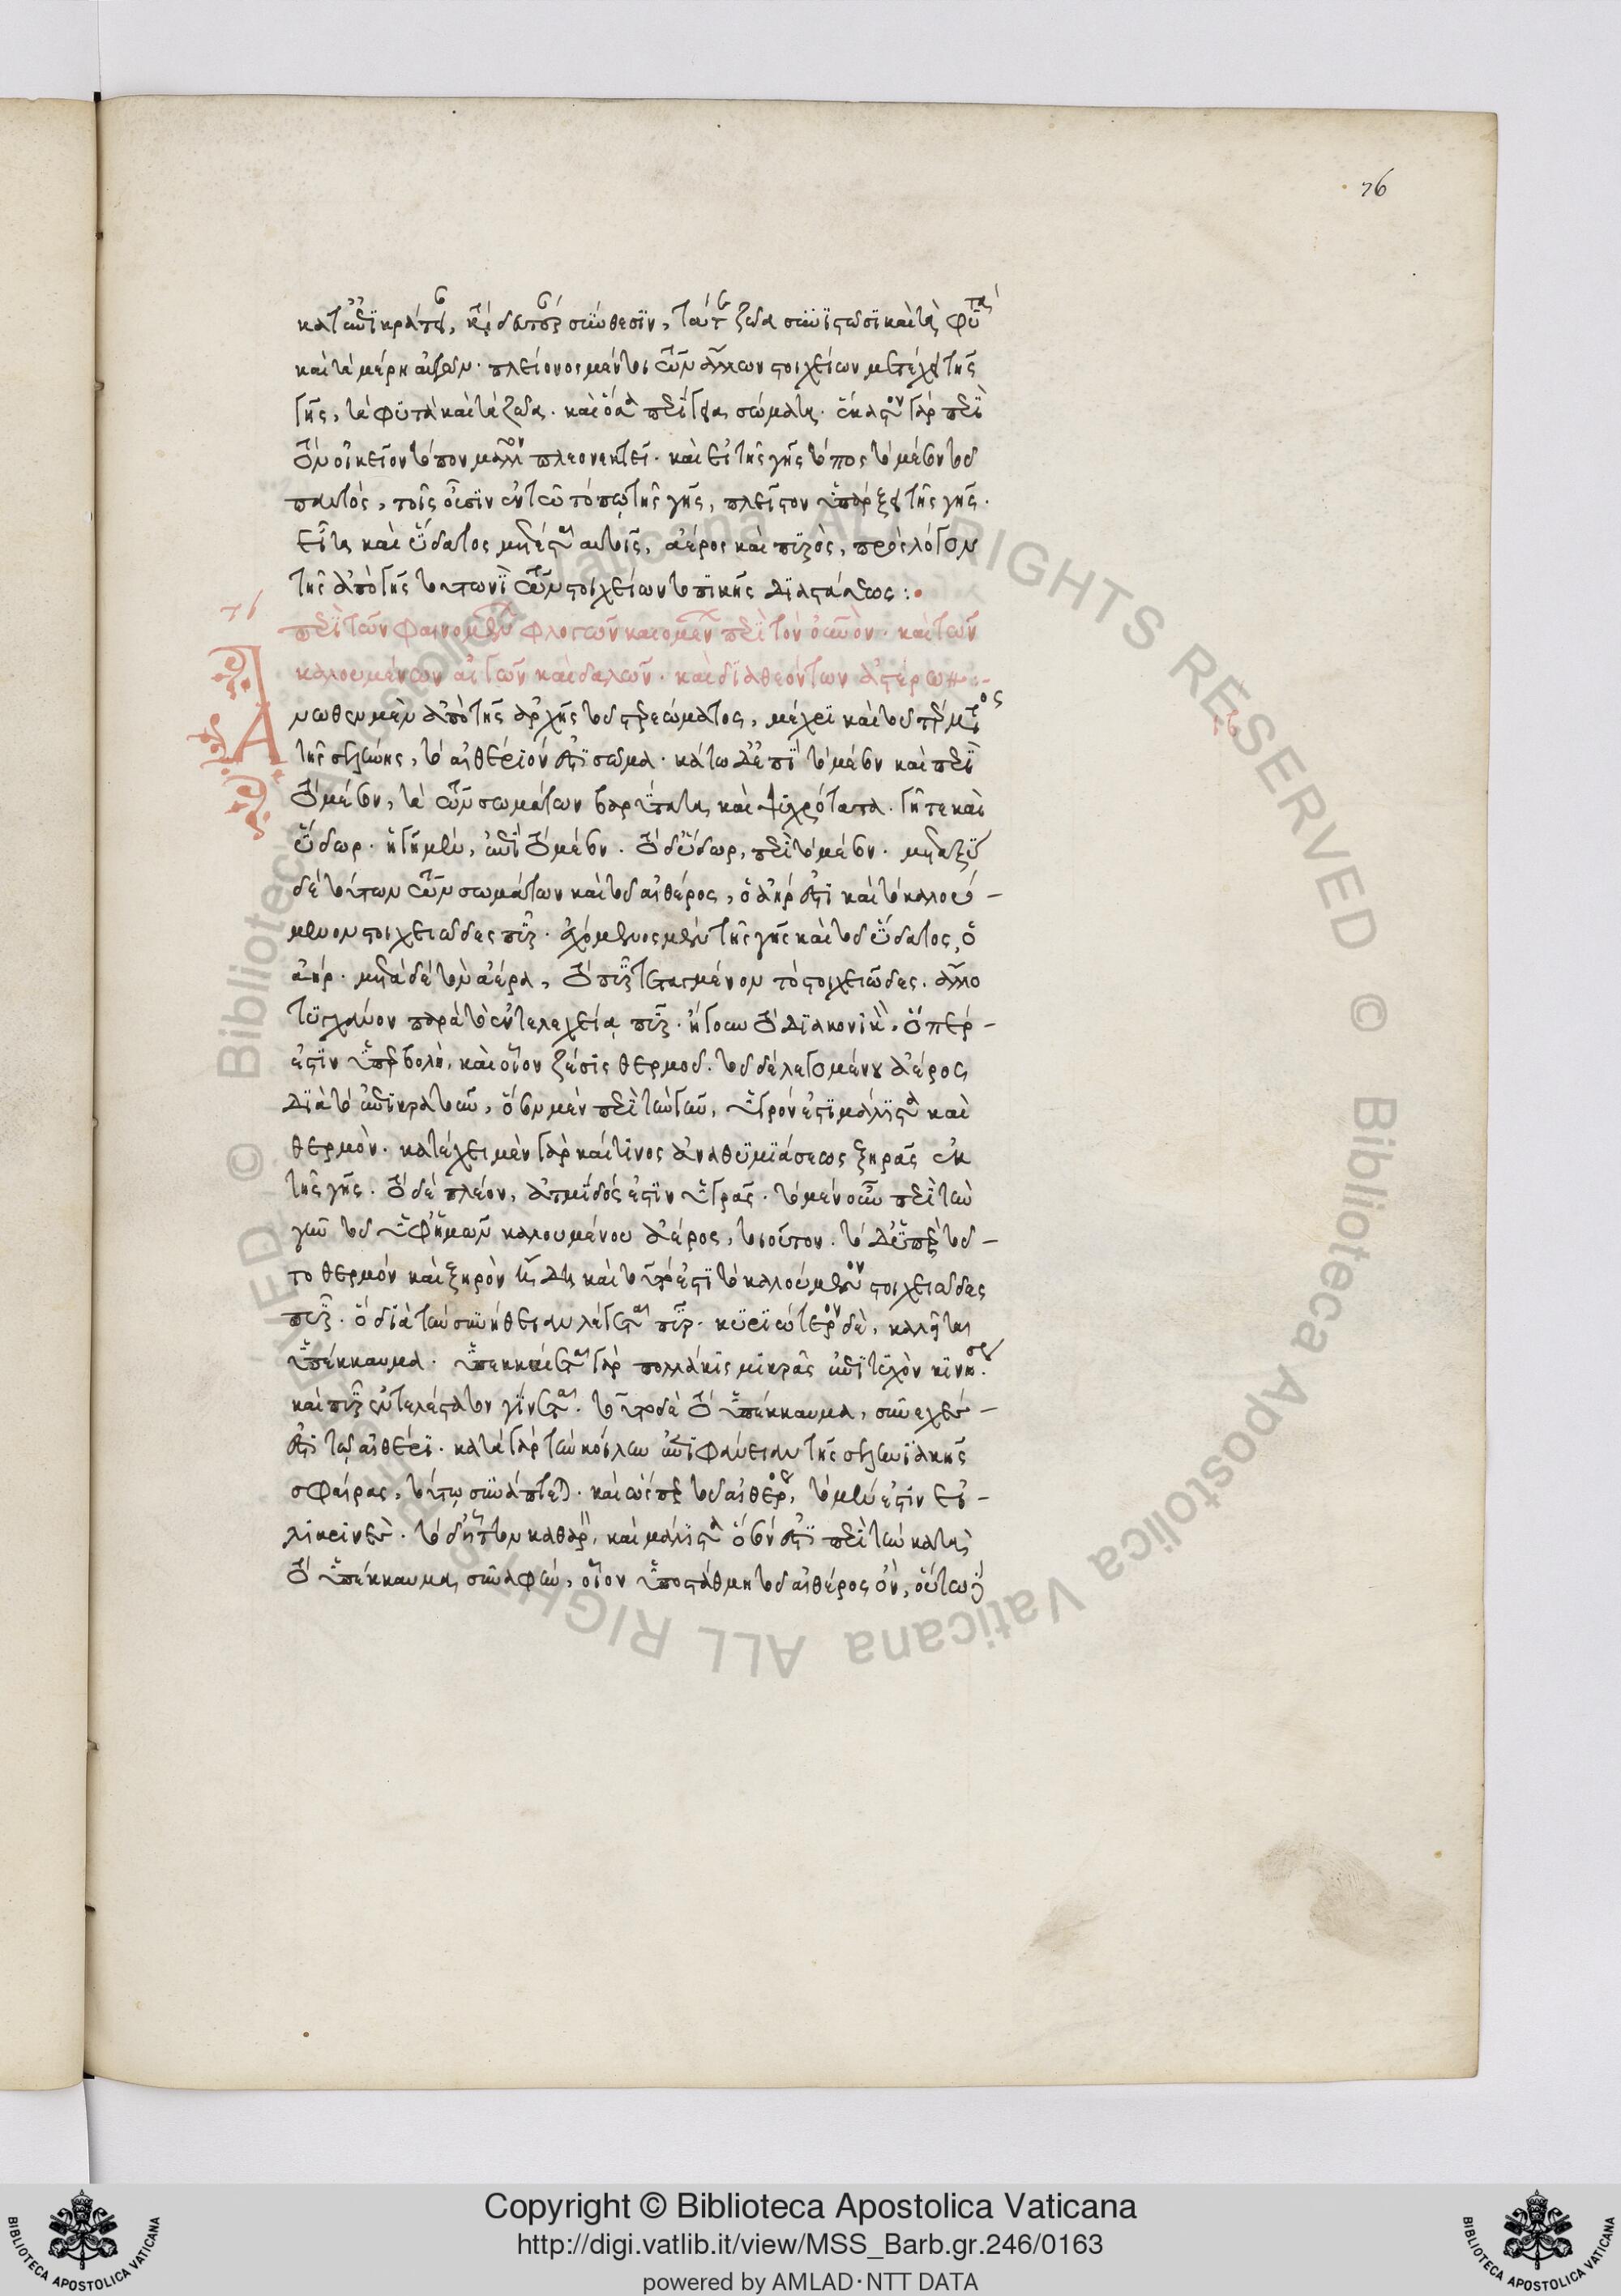 76
κατ' ἐπικράτειαν, καὶ δευτέραν σύνθεσιν, ταῦτα τὰ ζῶα συνιστῶσι καὶ τὰ φυτά
καὶ τὰ μέρη αὐτῶν. πλείονος μέντοι τῶν ἄλλων στοιχείων μετέχει τῆς
γῆς, τὰ φυτὰ καὶ τὰ ζῶα. καὶ ὅσα περίγεια σώματα. ἕκαστον γὰρ περὶ
τὸν οἰκεῖον τόπον μᾶλλον πλεονεκτεῖ. καὶ ἐπεὶ τῆς γῆς τόπος τὸ μέσον τοῦ
παντὸς, τοῖς οὖσιν ἐν τῷ τόπῳ τῆς γῆς, πλεῖστον ὑπάρξει τῆς γῆς.
εἶτα καὶ ὕδατος μετέσται αὐτοῖς, ἀέρος καὶ πυρὸς, πρὸς λόγον
τῆς ἀπὸ γῆς τουτωνὶ τῶν στοιχείων τοπικῆς διαστάσεως :
76
περὶ τῶν φαινομένων φλογῶν καιομένων περὶ τὸν οὐρανὸν. καὶ τῶν
καλουμένων αἰγῶν καὶ δαλῶν. καὶ διαθεόντων ἀστέρων :-
Ἄνωθεν μὲν ἀπὸ τῆς ἀρχῆς τοῦ στερεώματος, μέχρι καὶ τοῦ τέρματος
τῆς σελήνης, τὸ αἰθέριόν ἐστι σῶμα. κάτω δὲ ἐπὶ τὸ μέσον καὶ περὶ
τὸ μέσον, τὰ τῶν σωμάτων βαρύτατα καὶ ψυχρότατα. γῆ τε καὶ
ὕδωρ. ἡ γῆ μὲν, ἐπὶ τὸ μέσον. τὸ δ' ὕδωρ, περὶ τὸ μέσον. μεταξὺ
δὲ τούτων τῶν σωμάτων καὶ τοῦ αἰθέρος, ὁ ἀήρ ἐστι καὶ τὸ καλού-
μενον στοιχειῶδες πῦρ. ἐχόμενος μὲν τῆς γῆς καὶ τοῦ ὕδατος, ὁ
ἀήρ. μετὰ δὲ τὸν ἀέρα, τὸ πῦρ τεταγμένον τὸ στοιχειῶδες. ἄλλο
τυγχάνον παρὰ τὸ ἐντελεχείᾳ πῦρ. ἤγουν τὸ διακονικὸν. ὅπερ-
ἐστὶν ὑπερβολὴ, καὶ οἷον ζέσις θερμοῦ. τοῦ δὲ λεγομένου ἀέρος
διὰ τὸ ἐπικρατοῦν, ὅσον μὲν περὶ τὴν γῆν, ὑγρόν ἐστι μάλιστα καὶ
θερμὸν. κατέχει μὲν γὰρ καί τινος ἀναθυμιάσεως ξηρᾶς ἐκ
τῆς γῆς. τὸ δὲ πλέον, ἀτμίδός ἐστιν ὑγρᾶς. τὸ μὲν οὖν περὶ τὴν
γῆν τοῦ ὑφ' ἡμῶν καλουμένου ἀέρος, τοιοῦτον. τὸ δ' ὑπὲρ τοῦ-
το θερμόν καὶ ξηρὸν ἤδη καὶ τοῦτό ἐστι τὸ καλούμενον στοιχειῶδες
πῦρ. ὃ διὰ τὴν συνήθειαν λέγεται πῦρ. κυριώτερον δὲ, καλεῖται
ὑπέκκαυμα. ὑπεκκαίεται γὰρ πολλάκις μικρᾶς ἐπιτυχὸν κινήσεως.
καὶ πῦρ ἐντελέστατον γίνεται. τοῦτο δὲ τὸ ὑπέκκαυμα, συνεχές-
ἐστι τῷ αἰθέρι. κατὰ γὰρ τὴν κοίλην ἐπιφάνειαν τῆς σεληνιακῆς
σφαίρας, τούτῳ συνάπτεται. καὶ ὥσπερ τοῦ αἰθέρος, τὸ μέν ἐστιν εἰ-
λικρινές. τὸ δ' ἧττον καθαρὸν, καὶ μάλιστα ὅσον ἐστὶ περὶ τὴν κατὰ
τὸ ὑπέκκαυμα συναφὴν, οἷον ὑποστάθμη τοῦ αἰθέρος ὂν, οὕτω καὶ
Copyright © Biblioteca Apostolica Vaticana
http://digi.vatlib.it/view/MSS_Barb.gr.246/0163
powered by AMLAD·NTT DATA
BIBLIOTECA APOSTOLICA VATICANA
BIBLIOTECA APOSTOLICA VATICANA
© Biblioteca Apostolica Vaticana ALL RIGHTS RESERVED © Biblioteca Apostolica Vaticana ALL RIGHTS RESERVED